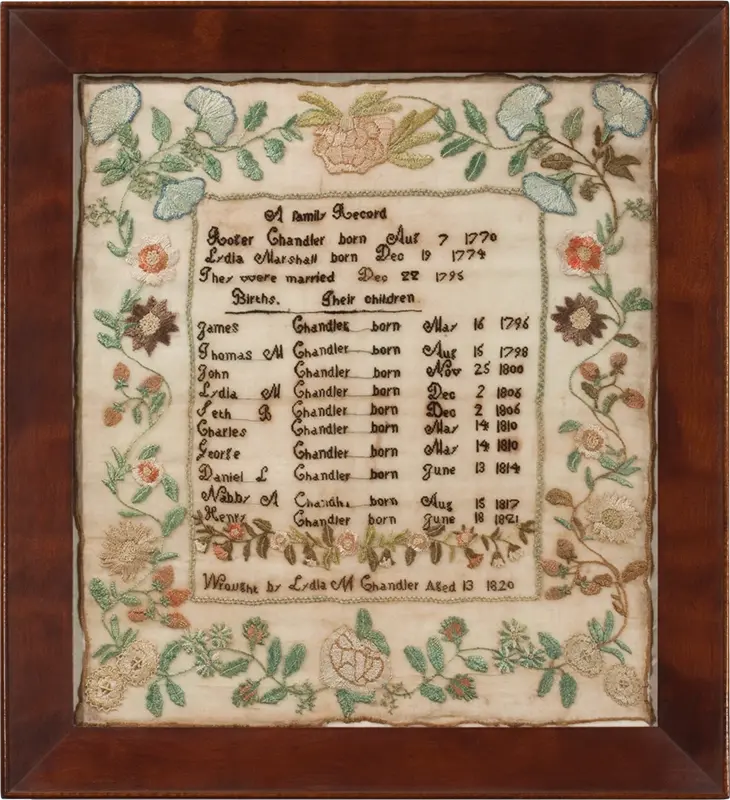 A Family Record
Roger Chandler born Aug 7 1770
Lydia Marshall born Dec 19 1774
They were married Dec 22 1795
Births. Their children
James Chandler born May 16 1796
Thomas M Chandler born Aug 15 1798
John Chandler born Nov 25 1800
Lydia M Chandler born Dec 2 1806
Seth B Chandler born Dec 2 1806
Charles Chandler born May 14 1810
George Chandler born May 14 1810
Daniel L Chandler born June 13 1814
Nabby A Chandler born Aug 15 1817
Henry Chandler born June 18 1821
Wrought by Lydia M Chandler Aged 13 1820